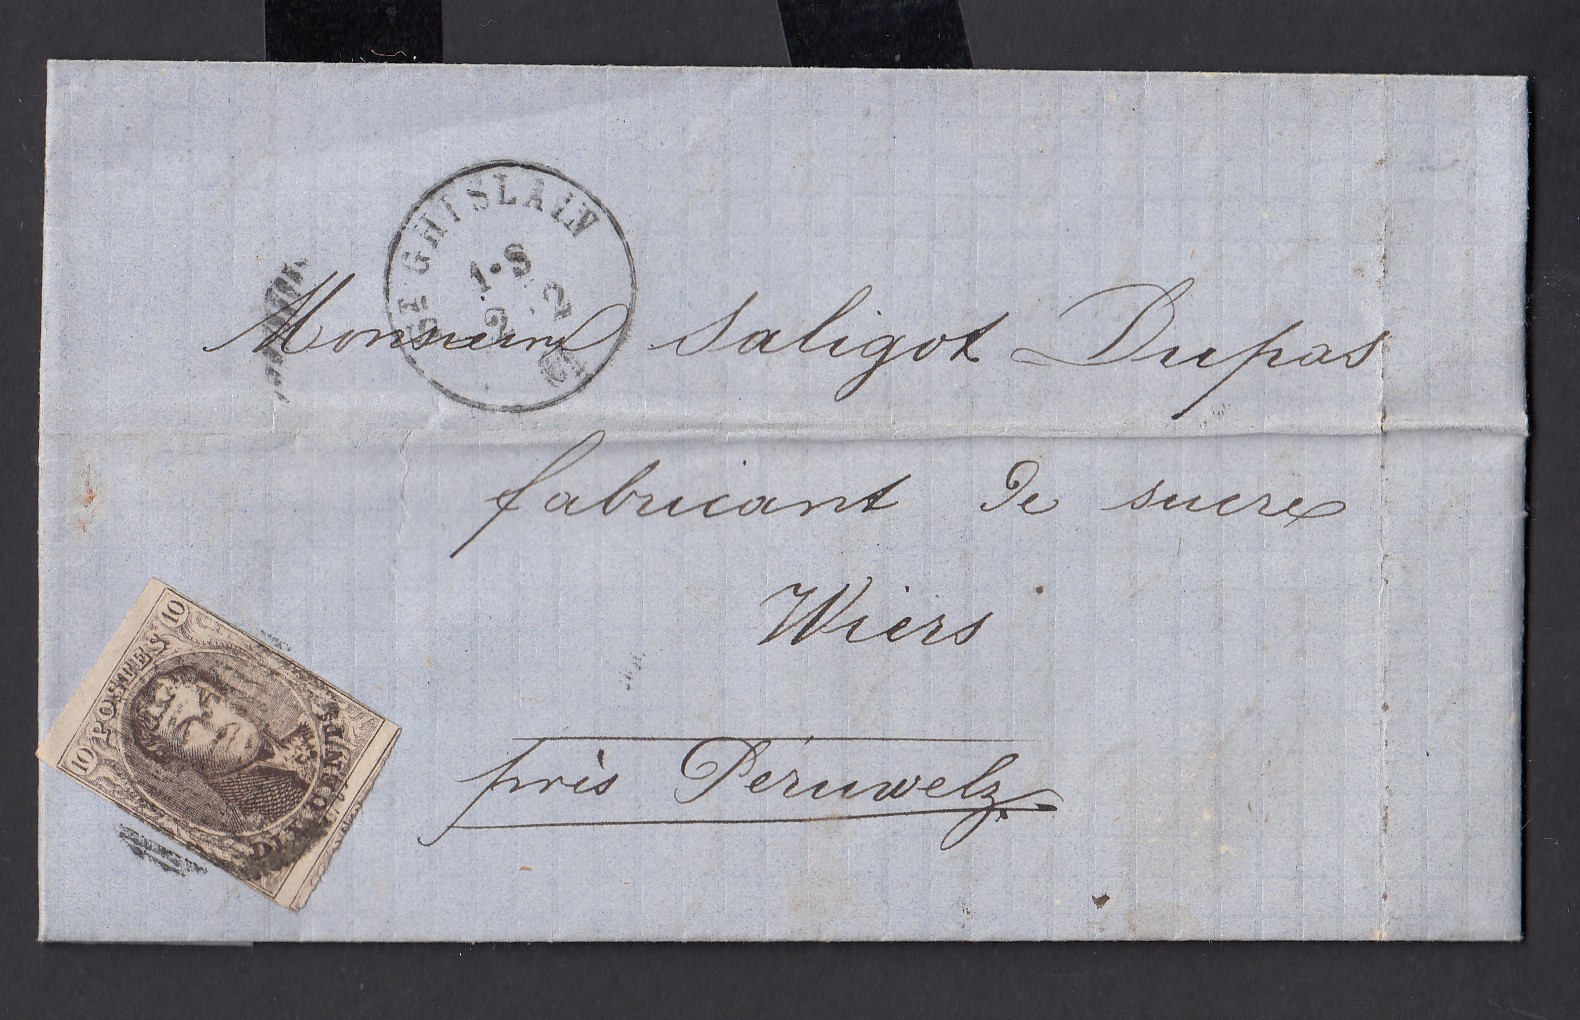 ST GHISLAIN
1·S
2
Monsieur Saligot Dupas
fabricant de sucre
Wiers
près Péruwelz
10 POSTES 10
DIX CENTIMES